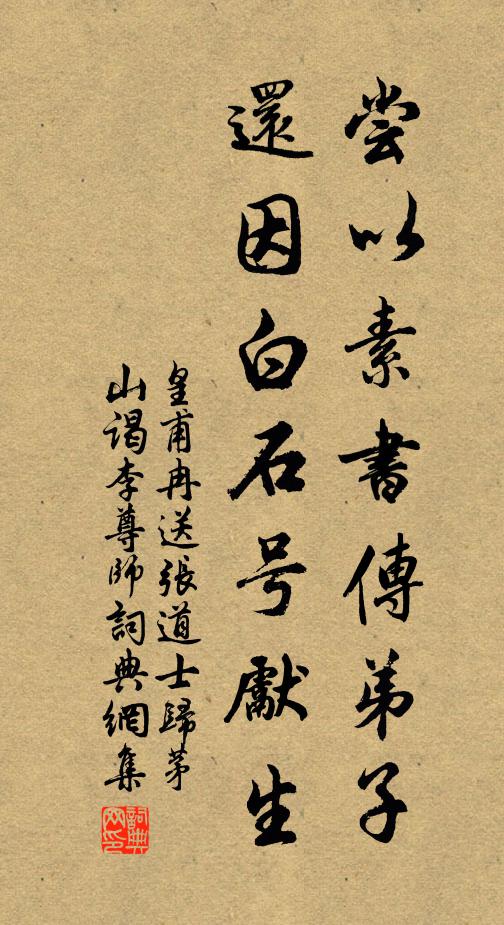 尝以素書傳弟子
還因白石号獻生
皇甫冉送張道士歸茅
山谒李尊師詞典網集
詞典网印